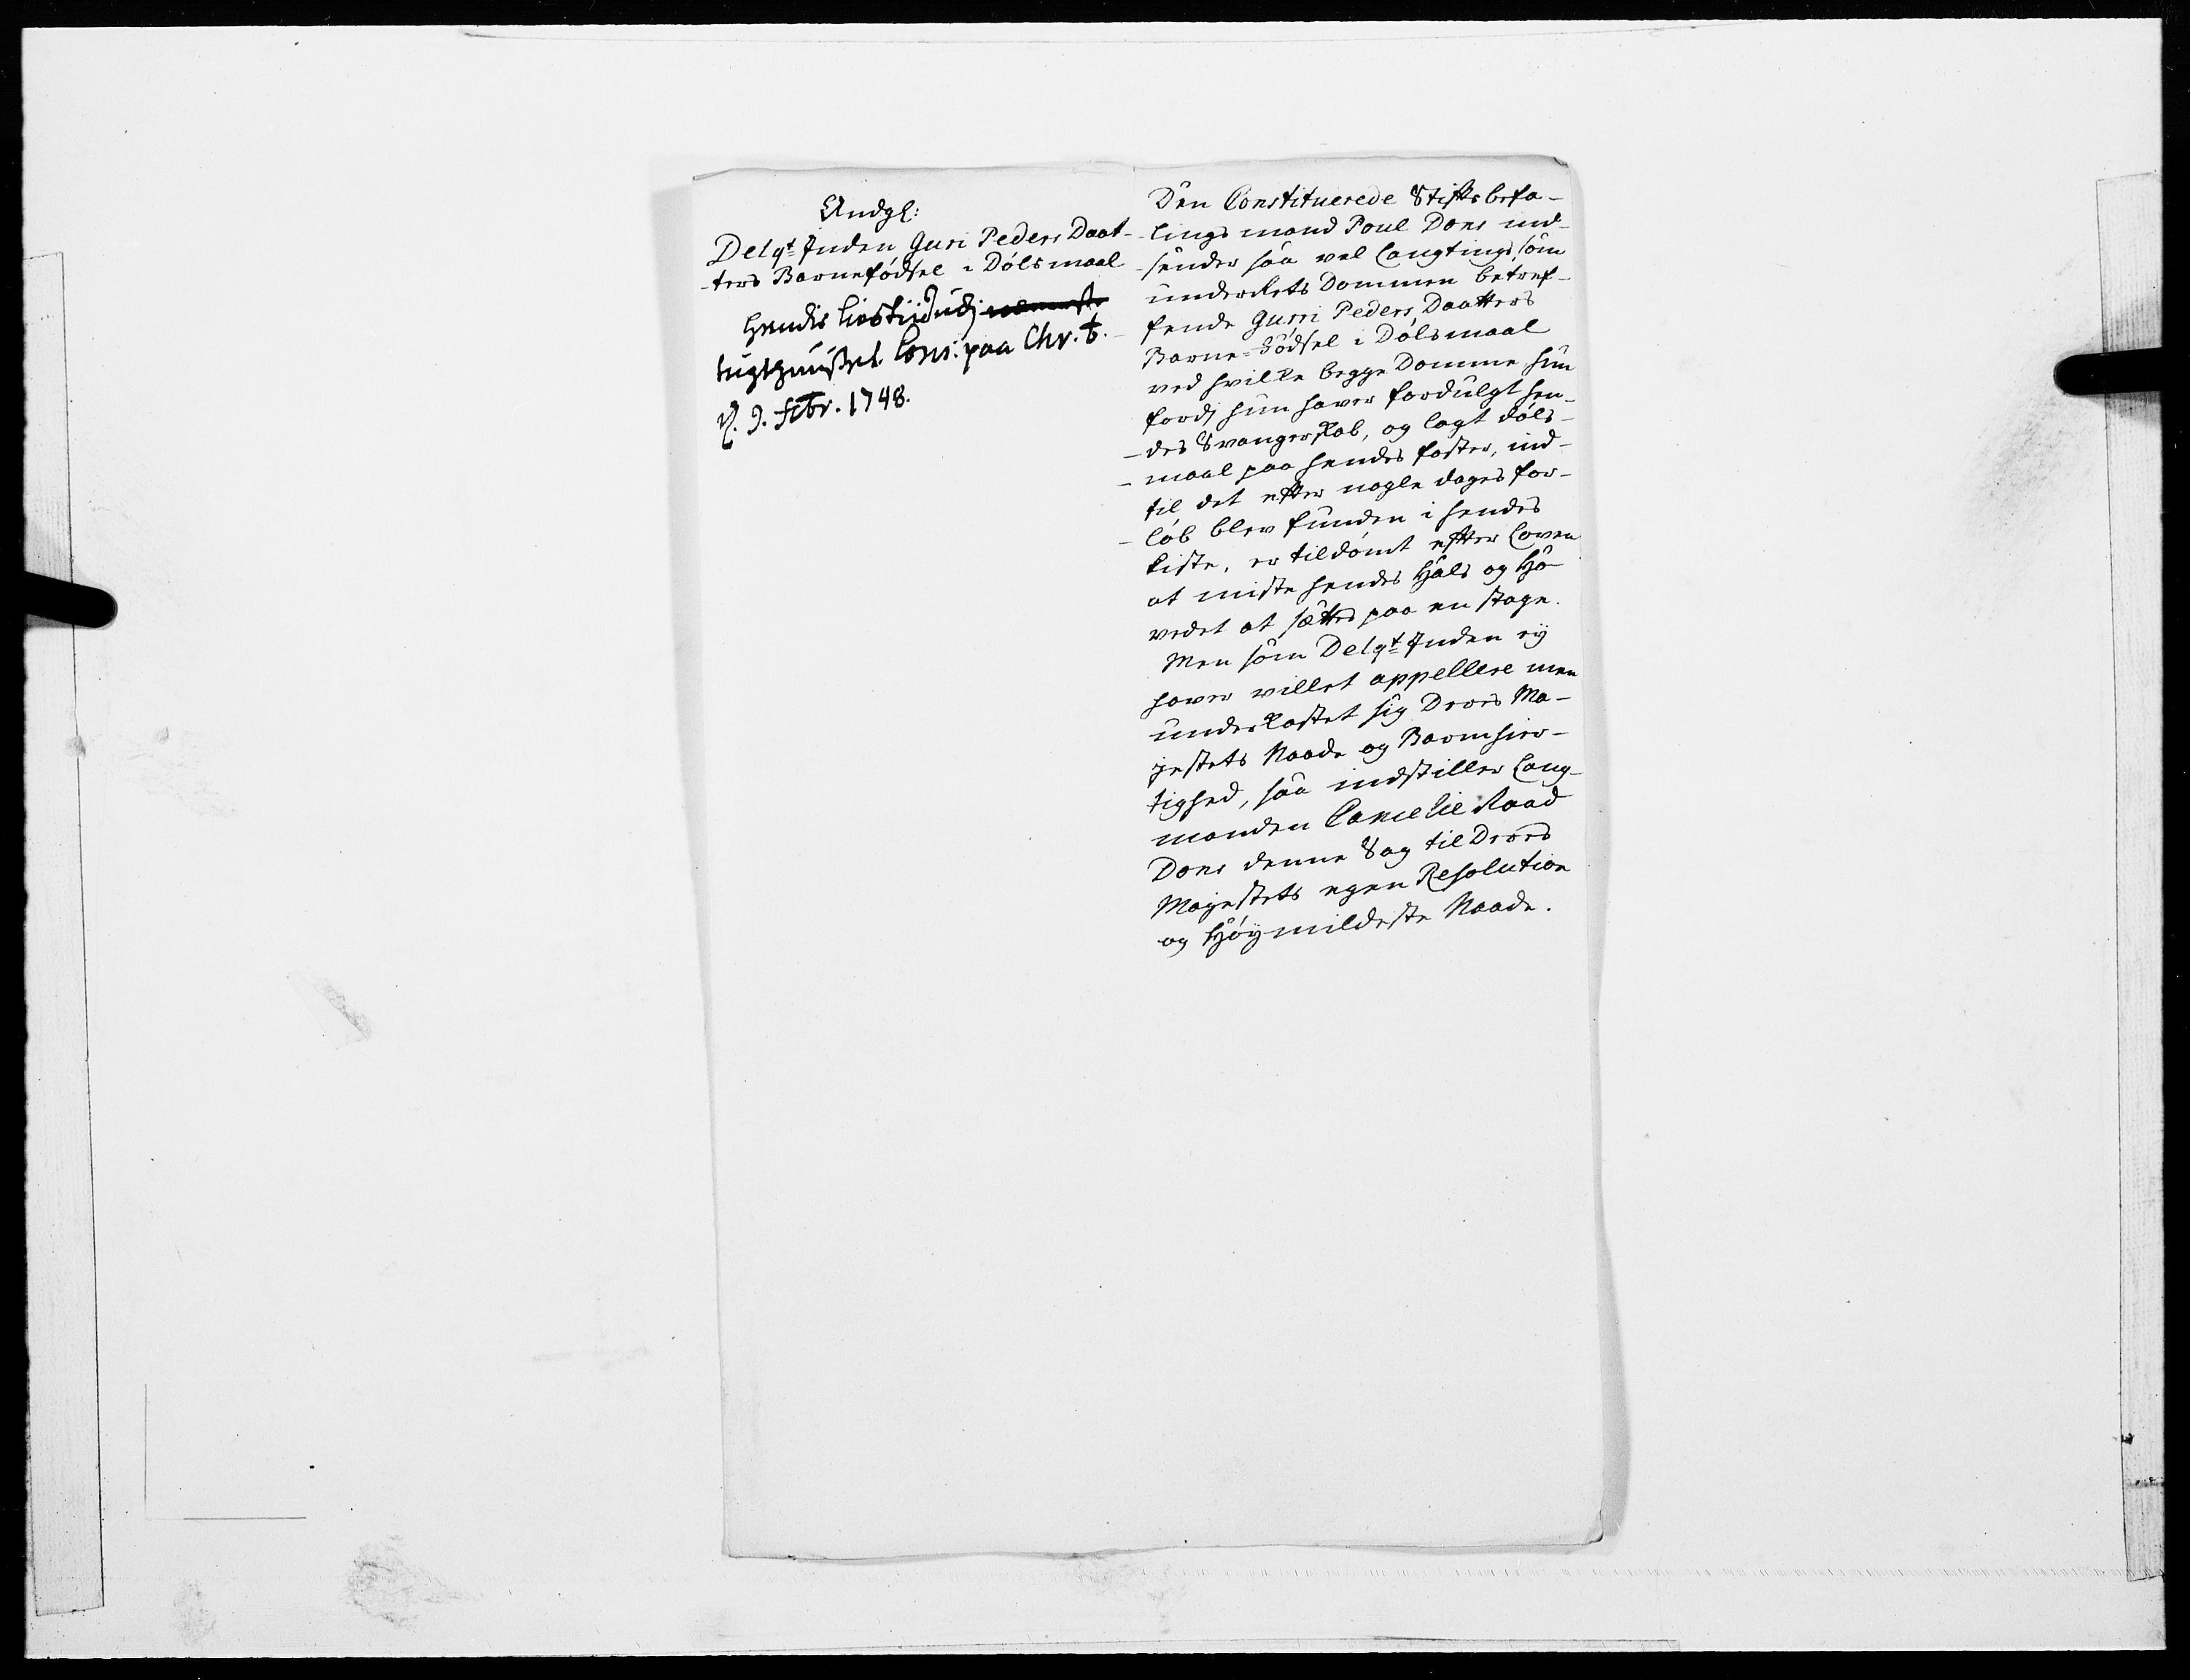 Andgl:
Delqt Inden Guri Peders Daat-
-ters Barnefødsel i Dølsmaal
hendis livstiid udj
tugthuuset. Conc: paa Chr. b.
d. 9. Febr. 1748.
Den Constituerede Stiftsbefa-
lings mand Poul Dons ind-
-sender saa vel Laugtings, som
underRets Dommen betref-
fende Gurri Peders Daatters
Barne-Fødsel i Dølsmaal
ved hvilke begge Domme hun
fordj hun haver fordulgt hen-
-des Svangerskab, og lagt døls-
-maal paa hendes foster, ind-
til det efter nogle dages for-
-løb blev funden i hendes
kiste, er tildømt efter Loven
at miste hendes Hals og Ho-
vedet at sættes paa en stage.
Men som Delqt Inden ey
haver villet appellere men
underkastet sig Deres Ma-
jestets Naade og Barmhier-
tighed, saa indstiller Laug-
manden Cancelie Raad
Dons denne Sag til Deres
Majestets egen Resolution
og Høymildeste Naade.